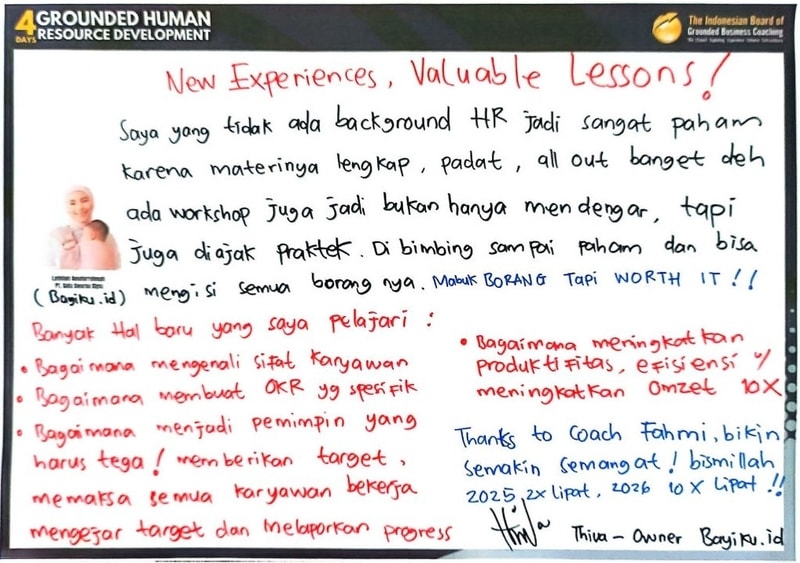 4 DAYS
GROUNDED HUMAN
RESOURCE DEVELOPMENT
The Indonesian Board of
Grounded Business Coaching
New Experiences, Valuable Lessons!
Saya yang tidak ada background HR jadi sangat paham
karena materinya lengkap, padat, all out banget deh
ada workshop juga jadi bukan hanya mendengar, tapi
juga diajak praktek. Di bimbing sampai paham dan bisa
(Bayiku.id) mengisi semua borang nya. Mabuk BORANG Tapi WORTH IT!!
Banyak Hal baru yang saya pelajari :
• Bagaimana mengenali sifat karyawan
• Bagaimana membuat OKR yg spesifik
• Bagaimana menjadi pemimpin yang
harus tega! memberikan target,
memaksa semua karyawan bekerja
mengejar target dan melaporkan progress
• Bagaimana meningkatkan
produktifitas, efisiensi y/
meningkatkan Omzet 10X
Thanks to Coach Fahmi, bikin
semakin semangat! bismillah
2025, 2x lipat, 2026 10 X Lipat!!
Thiva - Owner Bayiku.id